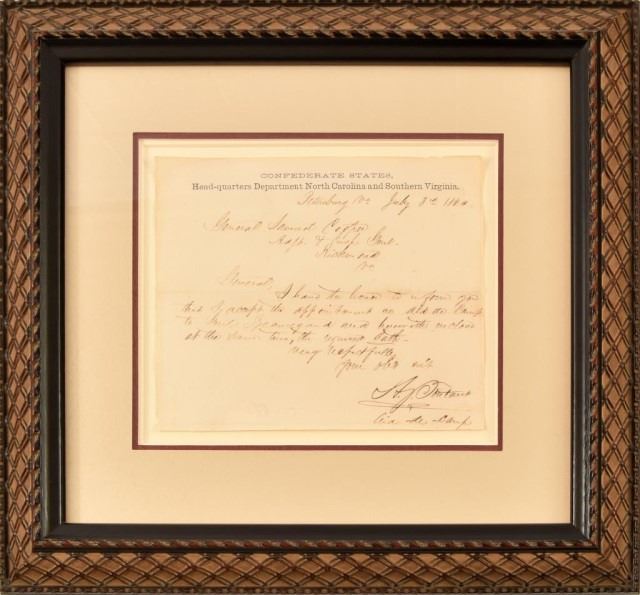 CONFEDERATE STATES,
Head-quarters Department North Carolina and Southern Virginia.
Petersburg Va July 8th 1864.
General Samuel Cooper
Adjt & Insp Genl.
Richmond
Va
General,
I have the honor to inform you
that I accept the appointment as aid de Camp
to Genl. Beauregard and herewith enclose
at the same time, the required Oath.
Very respectfully
Your obt svt
Aid-de-Camp